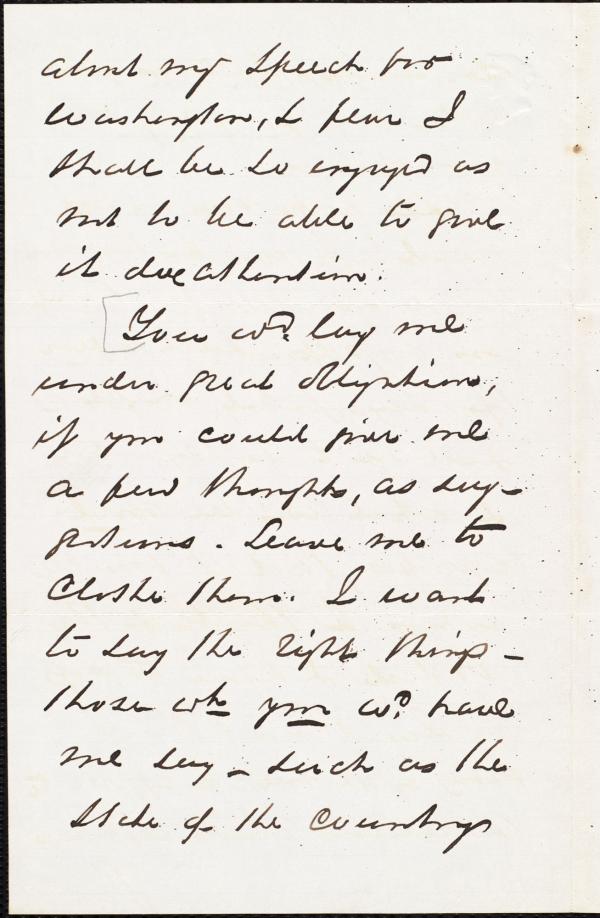 about my speech for
Washington, & fear I
shall be so engaged as
not to be able to give
it due attention.
You wd. lay me
under great obligations,
if you could give me
a few thoughts, as sug-
gestions. Leave me to
clothe them. I want
to say the right things -
those wh you wd. have
me say - such as the
State of the Country